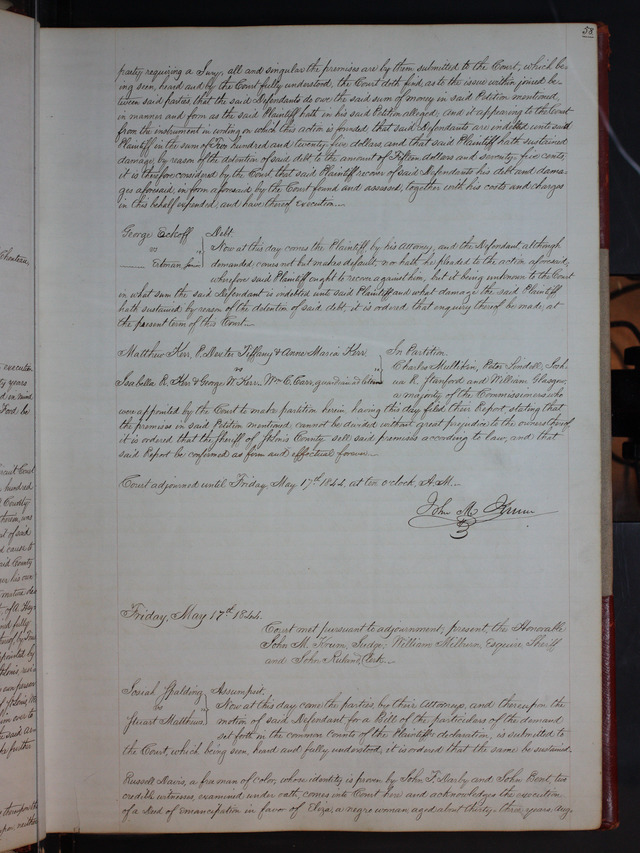 58
party requiring a Jury, all and singular the premises are by them submitted to the Court, which be-
ing seen, heard and by the Court fully understood, the Court doth find, as to the issue within joined be-
tween said parties, that the said Defendants do owe the said sum of money in said Petition mentioned,
in manner and form as the said Plaintiff hath in his said Petition alleged; and it appearing to the Court
from the instrument in writing on which this action is founded, that said Defendants are indebted unto said
Plaintiff in the sum of Two hundred and twenty five dollars, and that said Plaintiff hath sustained
damage by reason of the detention of said debt, to the amount of Fifteen dollars and seventy five cents;
it is therefore considered by the Court that said Plaintiff recover of said Defendants his debt and dama-
ges aforesaid, in form aforesaid by the Court found and assessed, together with his costs and charges
in this behalf expended, and have thereof execution.
George Eckoff } Debt.
vs Now at this day comes the Plaintiff by his Attorney, and the Defendant although
demanded comes not but makes default, nor hath he pleaded to the action aforesaid;
wherefore said Plaintiff ought to recover against him, but it being unknown to the Court
in what sum the said Defendant is indebted unto said Plaintiff and what damage the said Plaintiff
hath sustained by reason of the detention of said debt, it is ordered that enquiry thereof be made, at
the present term of this Court.
Matthew Kerr, P. Dexter Tiffany & Anna Maria Kerr } In Partition.
vs Charles Mullikin, Peter Lindell, Josh-
Isabella R. Kerr & George W. Kerr, Wm C. Carr, guardian ad litem ua R. Stanford and William Glasgow,
a majority of the Commissioners who
were appointed by the Court to make partition herein, having this day filed their Report stating that
the premises in said Petition mentioned cannot be divided without great prejudice to the owners thereof
it is ordered that the Sheriff of St Louis County sell said premises according to law, and that
said Report be confirmed as firm and effectual forever.
Court adjourned until Friday, May 17th 1844, at ten o'clock, A.M.
John M. Krum
Friday, May 17th 1844.
Court met pursuant to adjournment; present, the Honorable
John M. Krum, Judge; William Milburn, Esquire, Sheriff
and John Ruland, Clerk.
Josiah Spalding } Assumpsit.
vs Now at this day came the parties, by their Attorneys, and thereupon the
Stuart Matthews motion of said Defendant for a bill of the particulars of the demand
set forth in the common counts of the Plaintiff's declaration, is submitted to
the Court, which being seen, heard and fully understood, it is ordered that the same be sustained.
Russell Davis, a free man of color, whose identity is proven by John F. Darby and John Bent, two
credible witnesses, examined under oath, comes into Court here and acknowledges the execution
of a Deed of Emancipation in favor of Eliza, a negro woman, aged about thirty-three years, ack-